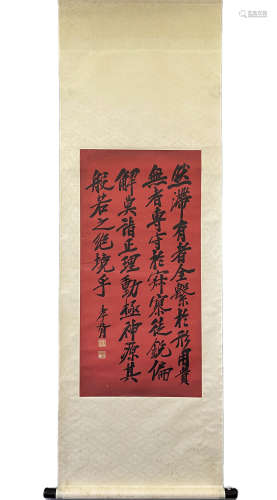 然滯有者全繫於形用貴
無者專守於寂寥徒銳偏
解莫詣正理動極神源其
般若之絕境乎